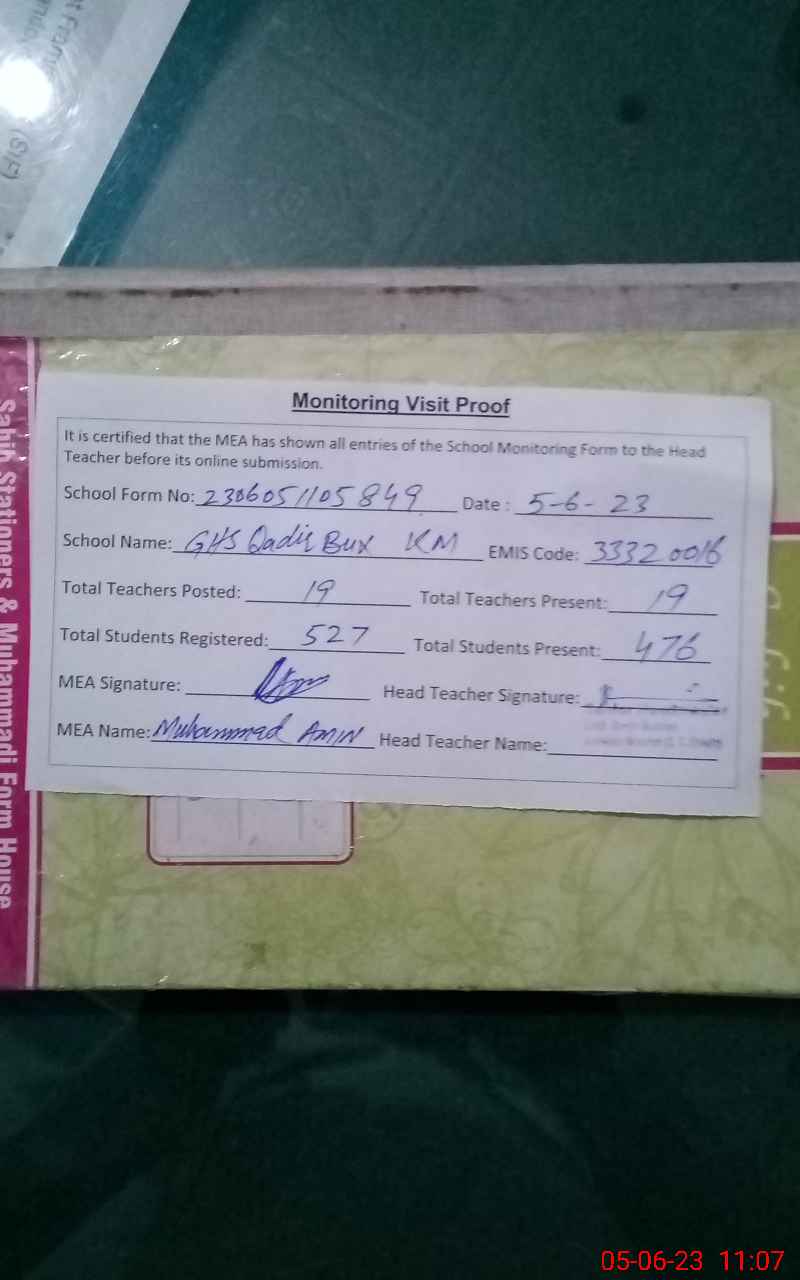 Monitoring Visit Proof
It is certified that the MEA has shown all entries of the School Monitoring Form to the Head
Teacher before its online submission.
School Form No: 2306051105849 Date : 5-6-23
School Name: GHS Qadir Bux KM EMIS Code: 33320016
Total Teachers Posted: 19 Total Teachers Present: 19
Total Students Registered: 527 Total Students Present: 476
MEA Signature: Head Teacher Signature:
MEA Name: Muhammad AMIN Head Teacher Name:
Sahib Stationers & Muhammadi Form House
05-06-23 11:07